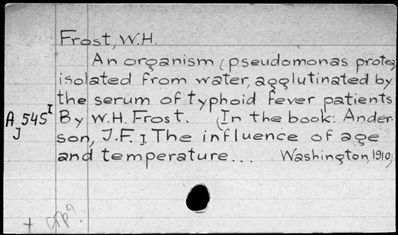 Frost, W.H.
An organism (pseudomonas protea)
isolated from water, agglutinated by
the serum of typhoid fever patients
A 545 I By W.H. Frost. (In the book: Ander-
J son, J.F. I The influence of age
and temperature... Washington, 1910)